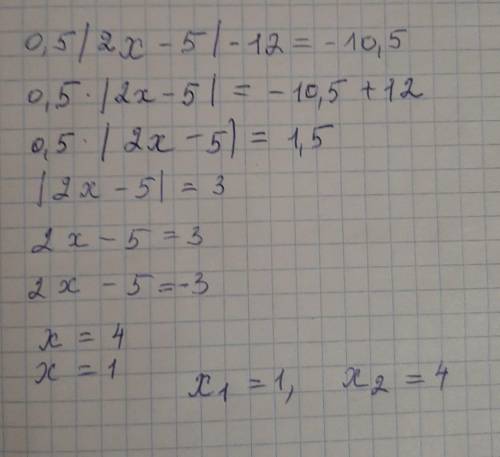 0,5|2x - 5| - 12 = - 10,5
0,5 · |2x - 5| = - 10,5 + 12
0,5 · | 2x - 5| = 1,5
|2x - 5| = 3
2x - 5 = 3
2x - 5 = -3
x = 4
x = 1
x₁ = 1, x₂ = 4